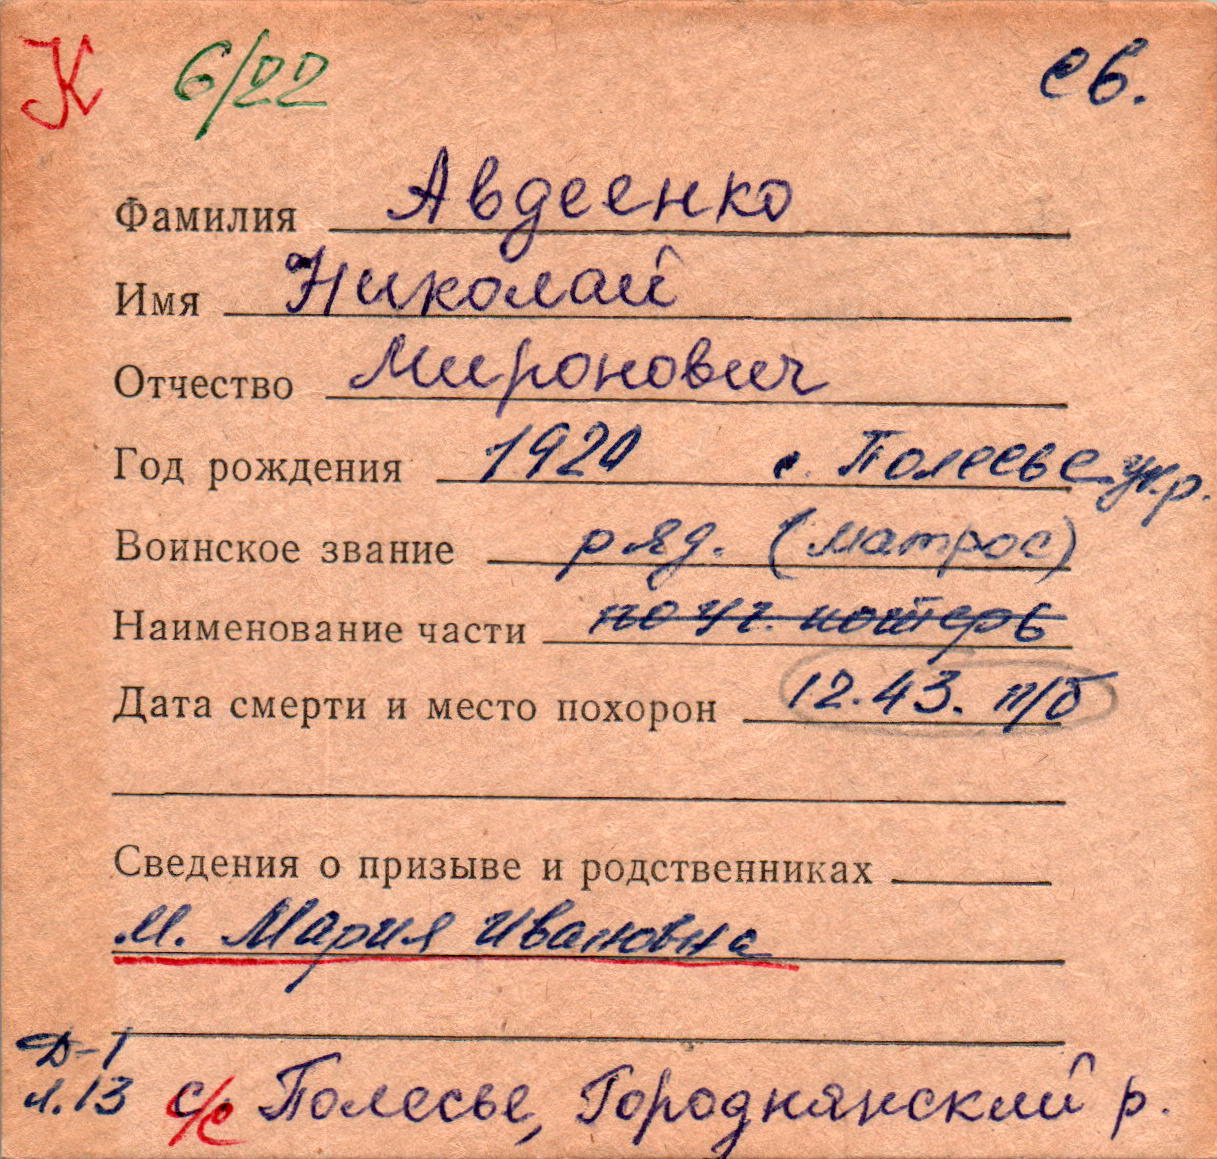 К 6/22 св.
Фамилия Авдеенко
Имя Николай
Отчество Миронович
Год рождения 1920 с. Полесье укр.
Воинское звание ряд. (матрос)
Наименование части по уч. потерь
Дата смерти и место похорон 12.43. п/б
Сведения о призыве и родственниках
м. Мария Ивановна
Д-1
л.13 с/с Полесье, Городнянский р.